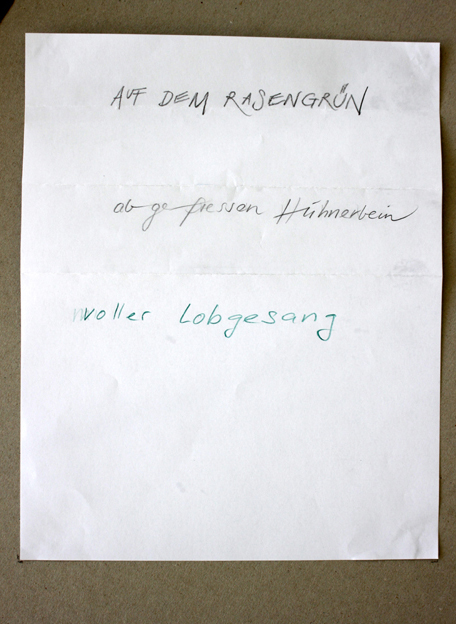 AUF DEM RASENGRÜN
abgefressen Hühnerbein
voller Lobgesang